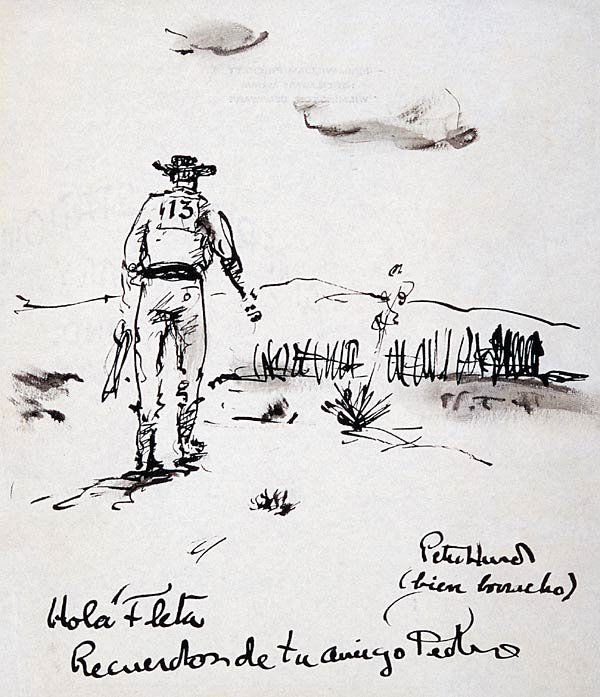 13
Peter Hurd
(bien borracho)
Hola Fleta
Recuerdos de tu amigo Pedro